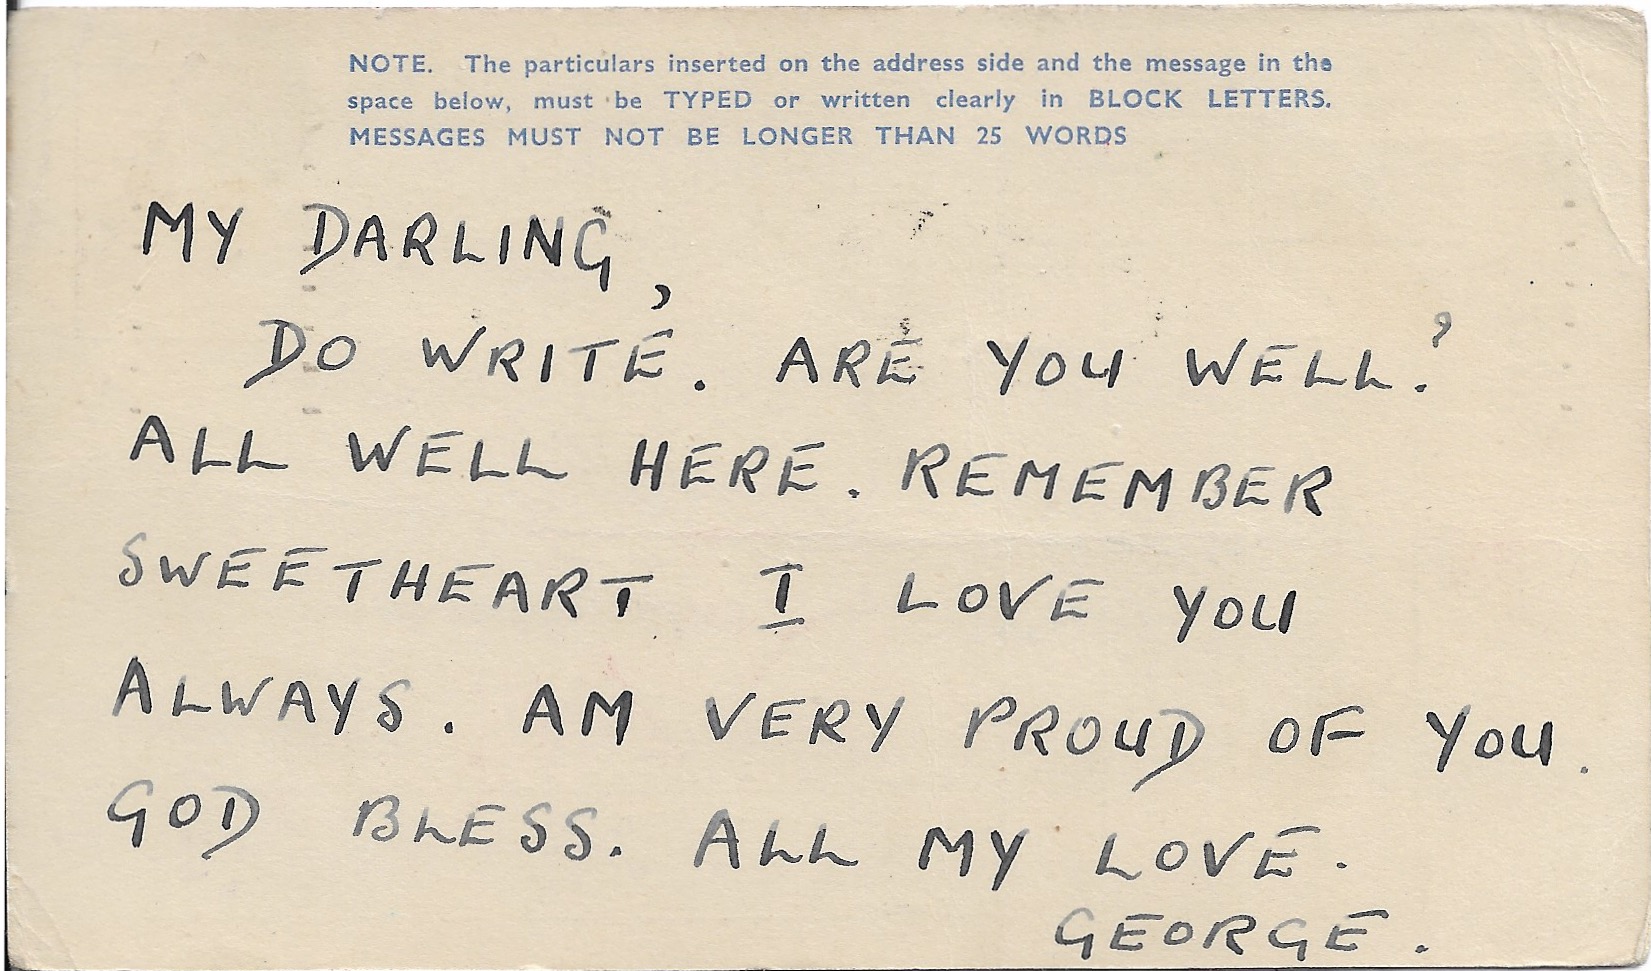 NOTE. The particulars inserted on the address side and the message in the
space below, must be TYPED or written clearly in BLOCK LETTERS.
MESSAGES MUST NOT BE LONGER THAN 25 WORDS
MY DARLING,
DO WRITE. ARE YOU WELL?
ALL WELL HERE. REMEMBER
SWEETHEART I LOVE YOU
ALWAYS. AM VERY PROUD OF YOU.
GOD BLESS. ALL MY LOVE.
GEORGE.